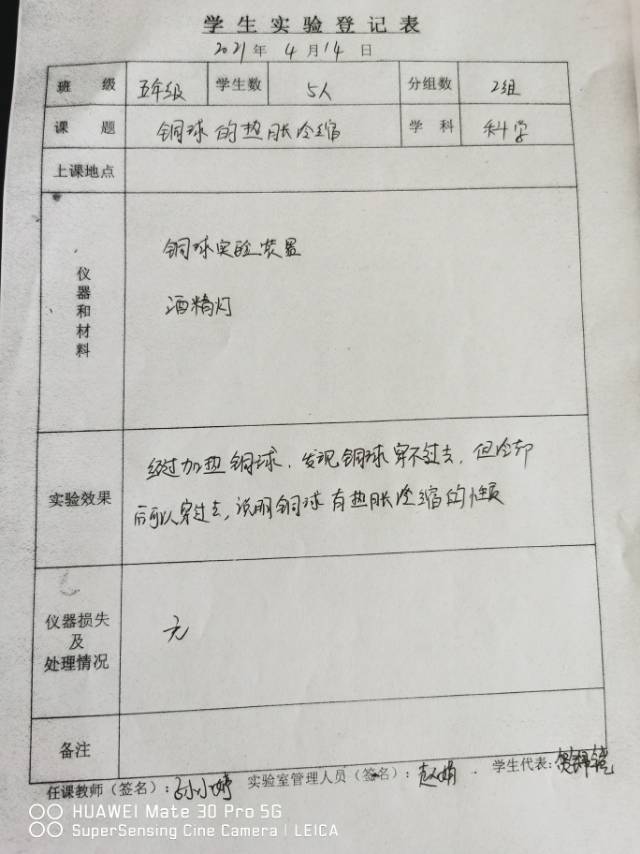 学生实验登记表
2021年 4月14日
班级 五年级 学生数 5人 分组数 2组
课题 铜球的热胀冷缩 学科 科学
上课地点
仪器和材料
铜球实验装置
酒精灯
经过加热铜球，发现铜球穿不过去，但冷却
实验效果
后可以穿过去，说明铜球有热胀冷缩的性质
仪器损失
及
处理情况
无
备注
任课教师（签名）：孙小婷 实验室管理人员（签名）： 学生代表：
HUAWEI Mate 30 Pro 5G
SuperSensing Cine Camera | LEICA